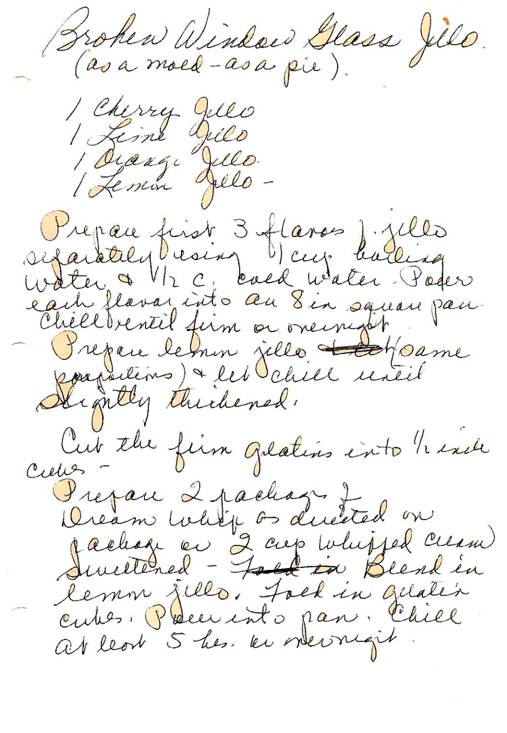 Broken Window Glass Jello.
(as a mold - as a pie).
1 Cherry Jello
1 Lime Jello
1 Orange Jello.
1 Lemon Jello -
Prepare first 3 flavors of jello
separately using 1 cup boiling
water & 1/2 c. cold water. Pour
each flavor into an 8 in square pan.
Chill until firm or overnight
Prepare lemon jello (same
proportions) & let chill until
slightly thickened.
Cut the firm gelatins into 1/2 inch
cubes -
Prepare 2 packages of
Dream Whip as directed on
package or 2 cup whipped cream
sweetened - Blend in
lemon jello. Fold in gelatin
cubes. Pour into pan. Chill
at least 5 hrs. or overnight.